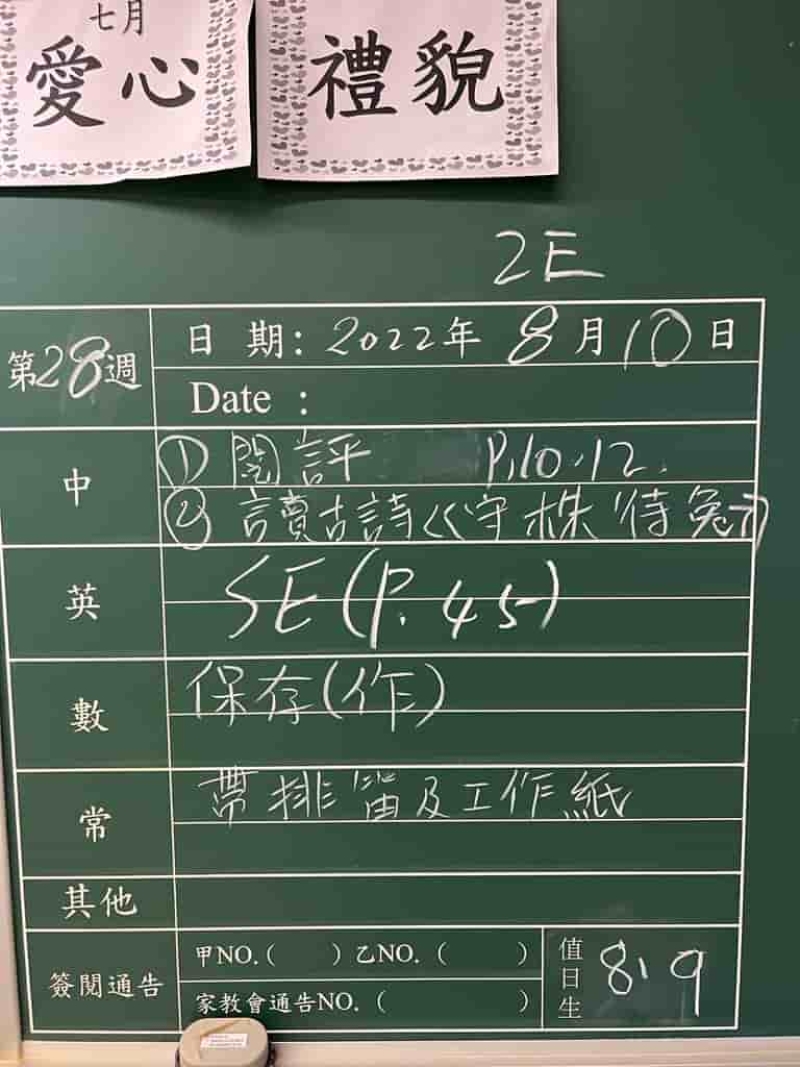 七月
愛心
禮貌
2E
第28週
日 期: 2022年 8月10日
Date :
中
① 閱評 P.10.12.
② 讀古詩《守株待兔》
英
SE(P.45)
數
保存(作)
常
帶排笛及工作紙
其他
簽閱通告
甲NO.( ) 乙NO.( )
家教會通告NO.( )
值日生
8、9